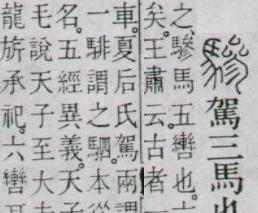 驂駕三馬也
之驂馬五轡也一
矣。王肅云古者一
車。夏后氏駕兩謂
一騑謂之駟。本從
名。五經異義。天子
毛說天子至大夫
龍旂承祀。六轡耳